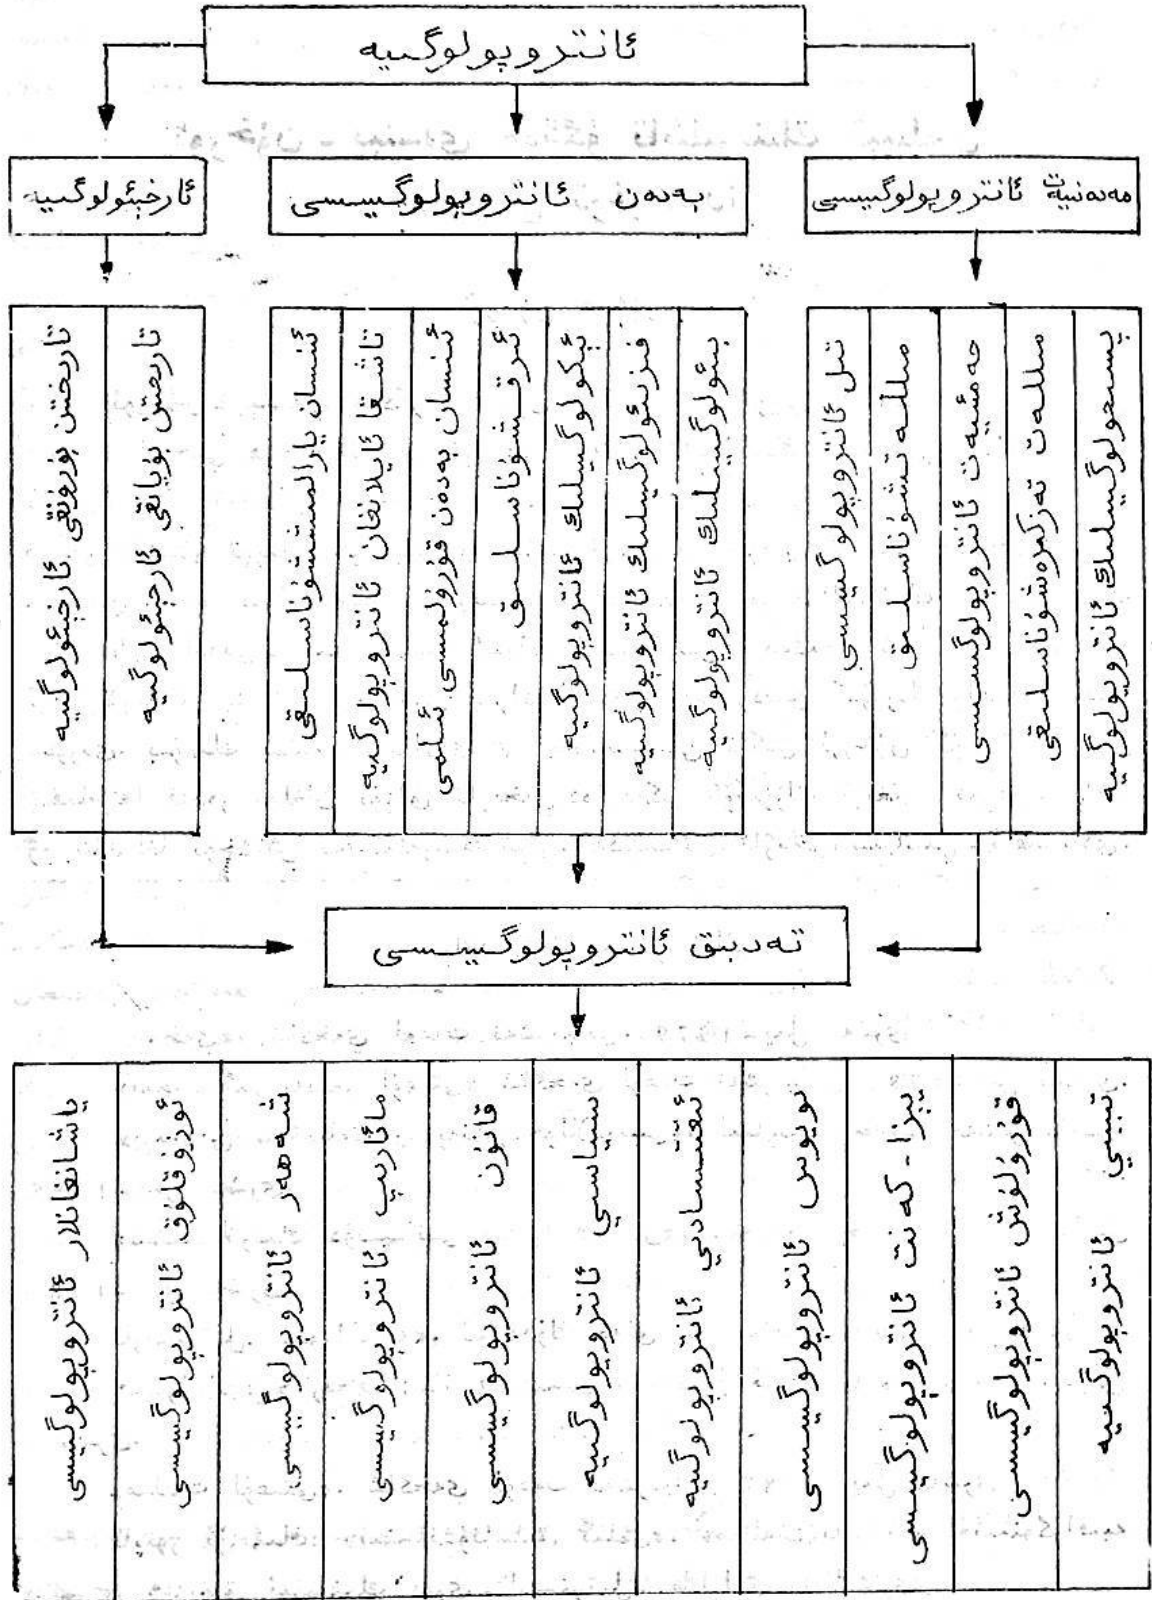 ئانتروپولوگىيە
مەدەنىيەت ئانتروپولوگىيىسى
بەدەن ئانتروپولوگىيىسى
ئارخېئولوگىيە
پسىخولوگىيىلىك ئانتروپولوگىيە
مىللەت تەزكىرەشۇناسلىقى
جەمئىيەت ئانتروپولوگىيىسى
مىللەتشۇناسلىق
تىل ئانتروپولوگىيىسى
بىئولوگىيىلىك ئانتروپولوگىيە
فىزىئولوگىيىلىك ئانتروپولوگىيە
ئېكولوگىيىلىك ئانتروپولوگىيە
ئىرقشۇناسلىق
ئىنسان بەدەن قۇرۇلمىسى ئىلمى
تاشقا ئايلانغان ئانتروپولوگىيە
ئىنسان يارالمىششۇناسلىقى
تارىختىن بۇيانقى ئارخېئولوگىيە
تارىختىن بۇرۇنقى ئارخېئولوگىيە
تەدبىق ئانتروپولوگىيىسى
تىببىي ئانتروپولوگىيە
قۇرۇلۇش ئانتروپولوگىيىسى
يېزا-كەنت ئانتروپولوگىيىسى
نوپۇس ئانتروپولوگىيىسى
ئىقتىسادىي ئانتروپولوگىيە
سىياسىي ئانتروپولوگىيە
قانۇن ئانتروپولوگىيىسى
مائارىپ ئانتروپولوگىيىسى
شەھەر ئانتروپولوگىيىسى
ئوزۇقلۇق ئانتروپولوگىيىسى
ياشانغانلار ئانتروپولوگىيىسى